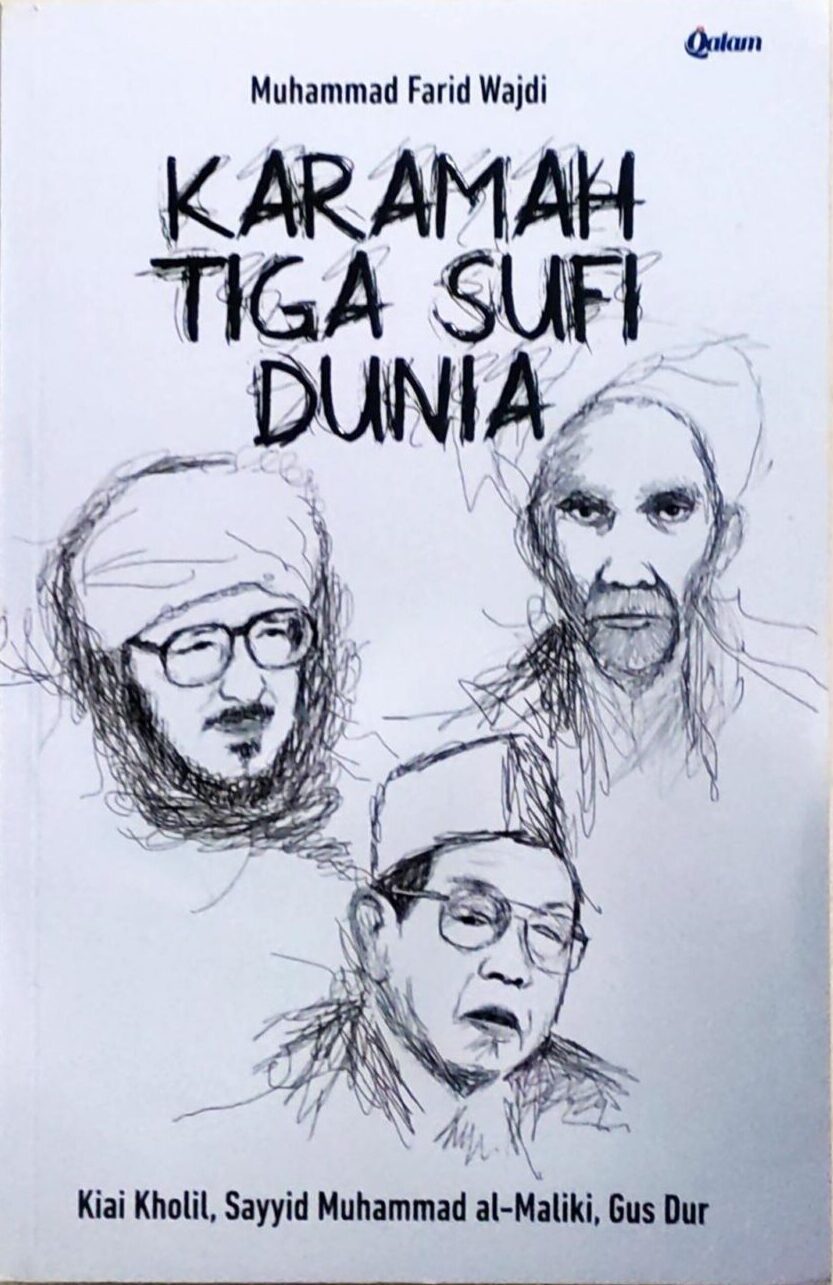 Qalam
Muhammad Farid Wajdi
KARAMAH
TIGA SUFI
DUNIA
Kiai Kholil, Sayyid Muhammad al-Maliki, Gus Dur